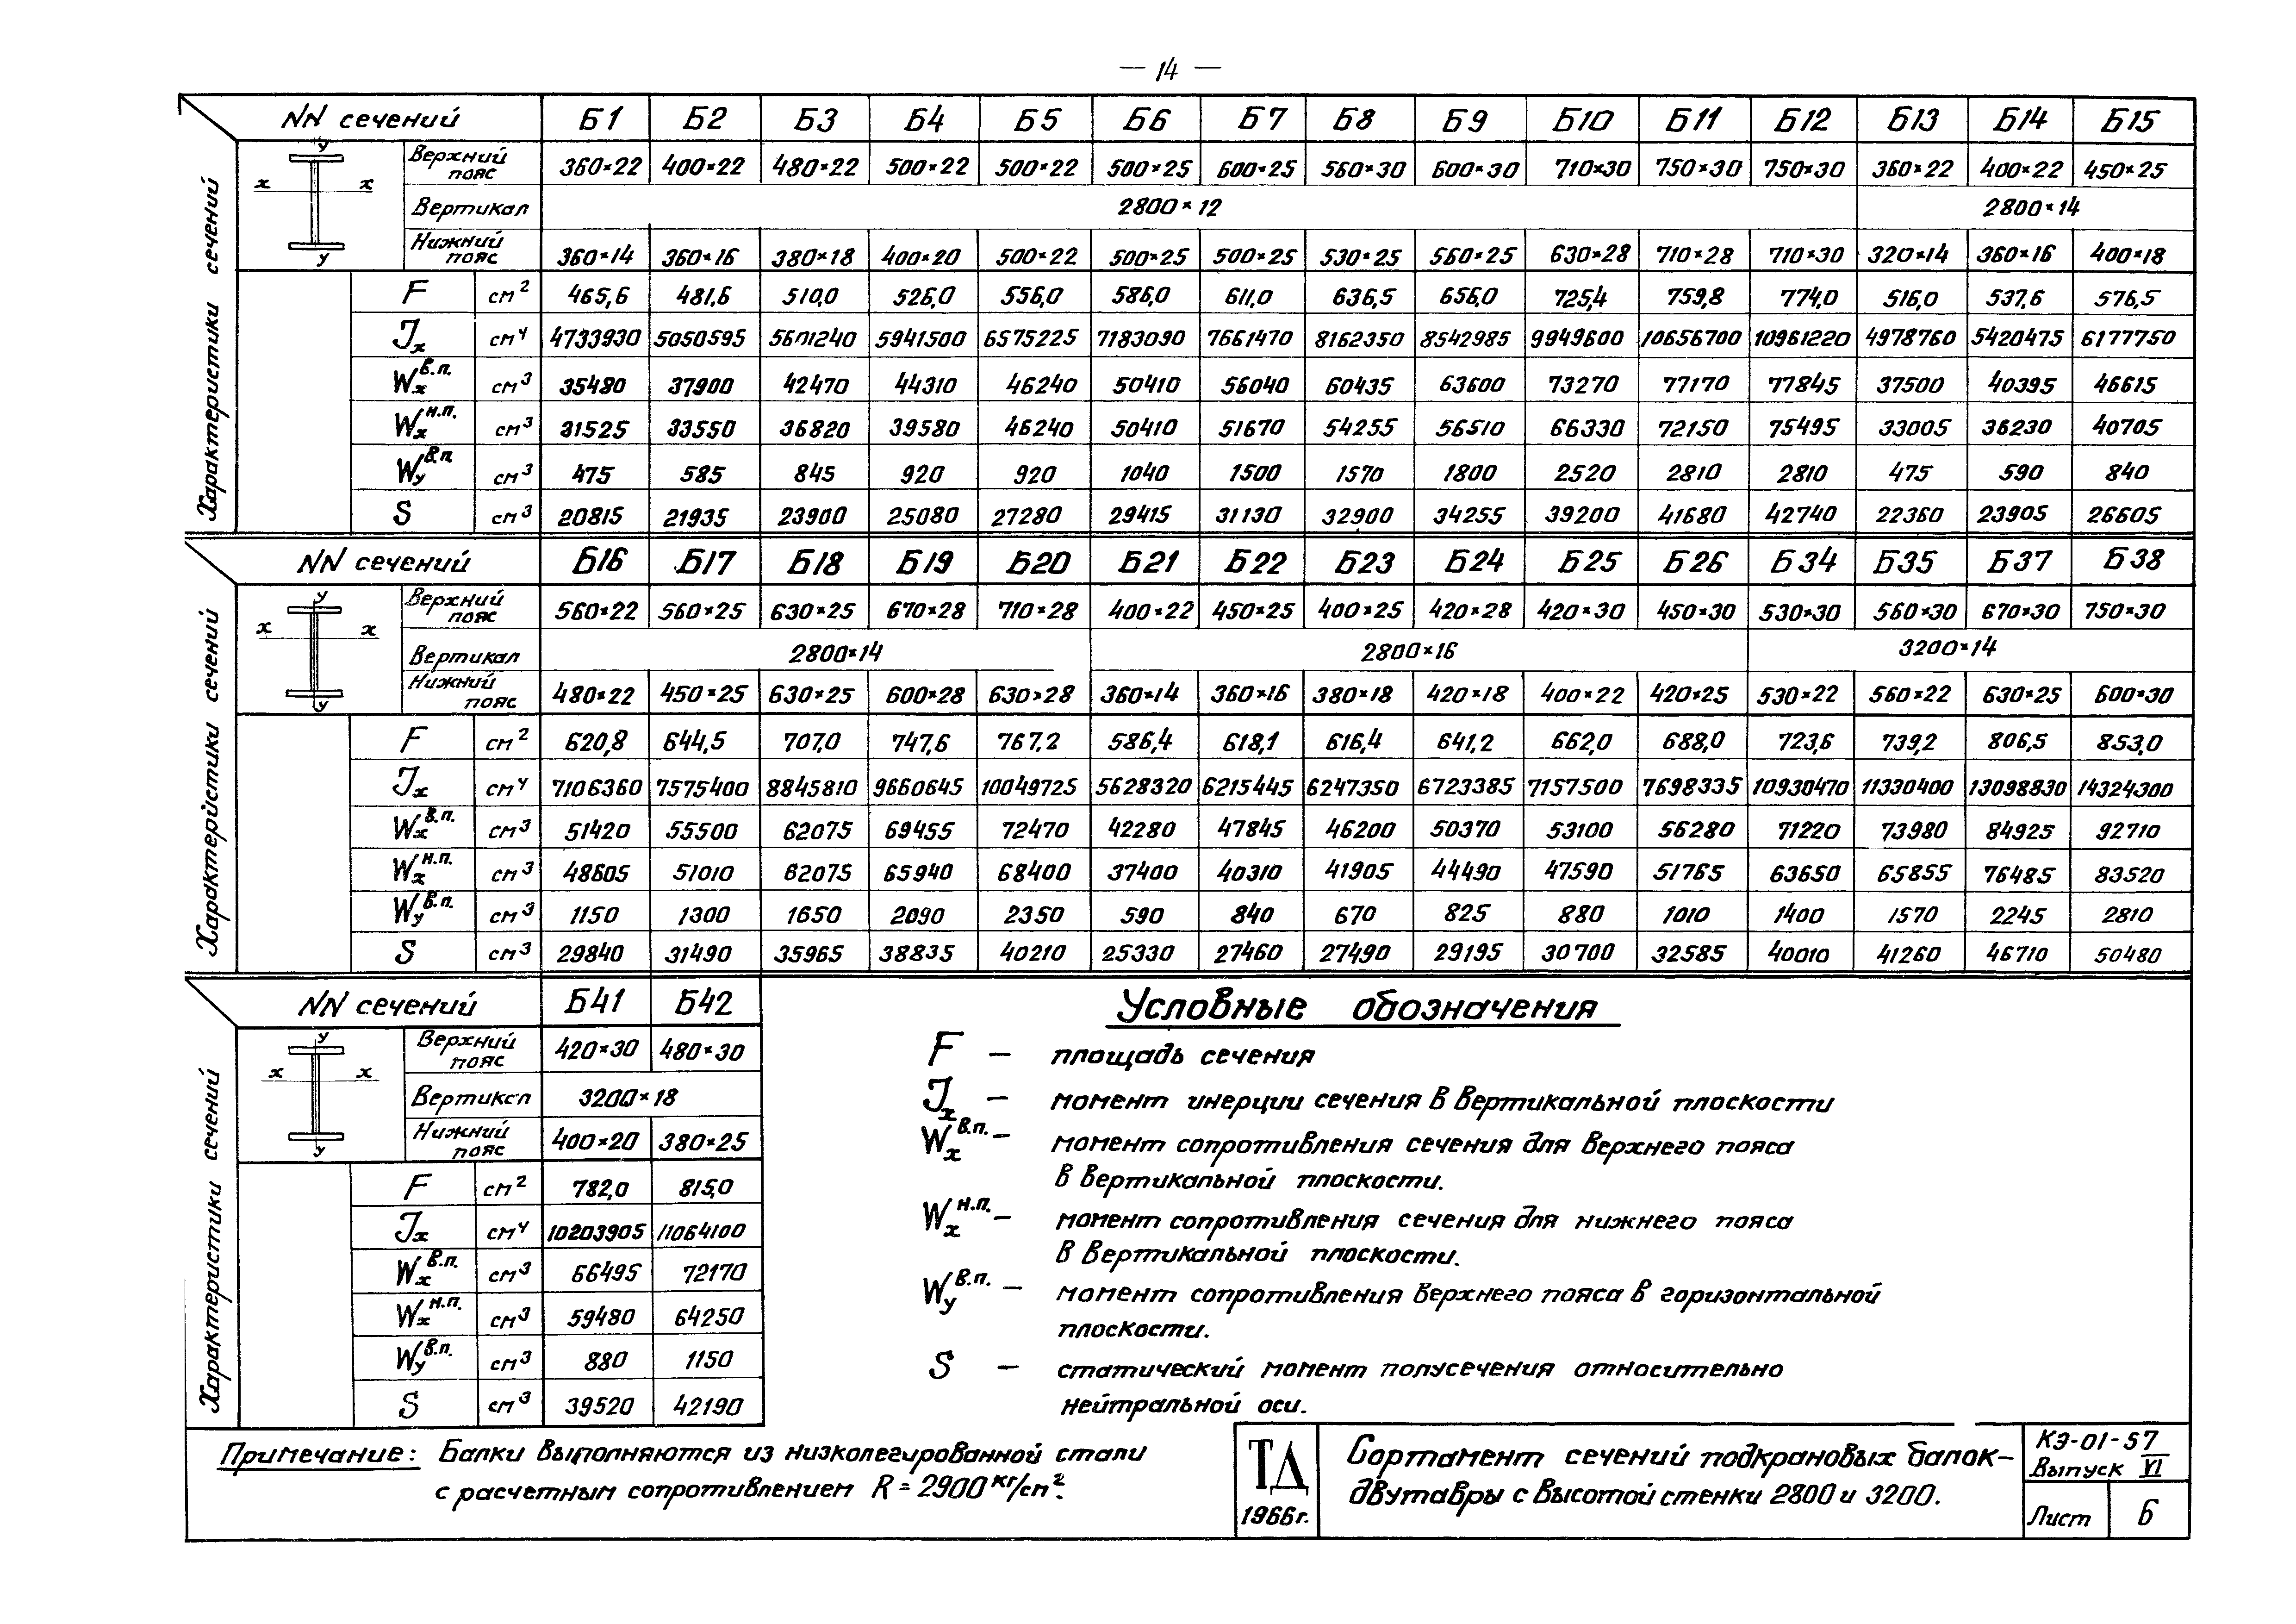 — 14 —
NN сечений Б1 Б2 Б3 Б4 Б5 Б6 Б7 Б8 Б9 Б10 Б11 Б12 Б13 Б14 Б15
Характеристики сечений
у
х х
у
Верхний пояс 360×22 400×22 480×22 500×22 500×22 500×25 600×25 560×30 600×30 710×30 750×30 750×30 360×22 400×22 450×25
Вертикал 2800×12 2800×14
Нижний пояс 360×14 360×16 380×18 400×20 500×22 500×25 500×25 530×25 560×25 630×28 710×28 710×30 320×14 360×16 400×18
F см² 465,6 481,6 510,0 526,0 556,0 586,0 611,0 636,5 656,0 725,4 759,8 774,0 516,0 537,6 576,5
Jx см⁴ 4733930 5050595 5601240 5941500 6575225 7183090 7661470 8162350 8542985 9949600 10656700 10961220 4978760 5420475 6177750
Wx в.п. см³ 35480 37900 42470 44310 46240 50410 56040 60435 63600 73270 77170 77845 37500 40395 46615
Wx н.п. см³ 31525 33550 36820 39580 46240 50410 51670 54255 56510 66330 72150 75495 33005 36230 40705
Wу в.п. см³ 475 585 845 920 920 1040 1500 1570 1800 2520 2810 2810 475 590 840
S см³ 20815 21935 23900 25080 27280 29415 31130 32900 34255 39200 41680 42740 22360 23905 26605
NN сечений Б16 Б17 Б18 Б19 Б20 Б21 Б22 Б23 Б24 Б25 Б26 Б34 Б35 Б37 Б38
Характеристики сечений
у
х х
у
Верхний пояс 560×22 560×25 630×25 670×28 710×28 400×22 450×25 400×25 420×28 420×30 450×30 530×30 560×30 670×30 750×30
Вертикал 2800×14 2800×16 3200×14
Нижний пояс 480×22 450×25 630×25 600×28 630×28 360×14 360×16 380×18 420×18 400×22 420×25 530×22 560×22 630×25 600×30
F см² 620,8 644,5 707,0 747,6 767,2 586,4 618,1 616,4 641,2 662,0 688,0 723,6 739,2 806,5 853,0
Jx см⁴ 7106360 7575400 8845810 9660645 10049725 5628320 6215445 6247350 6723385 7157500 7698335 10930470 11330400 13098830 14324300
Wx в.п. см³ 51420 55500 62075 69455 72470 42280 47845 46200 50370 53100 56280 71220 73980 84925 92710
Wx н.п. см³ 48605 51010 62075 65940 68400 37400 40310 41905 44490 47590 51765 63650 65855 76485 83520
Wу в.п. см³ 1150 1300 1650 2090 2350 590 840 670 825 880 1010 1400 1570 2245 2810
S см³ 29840 31490 35965 38835 40210 25330 27460 27490 29195 30700 32585 40010 41260 46710 50480
NN сечений Б41 Б42
Характеристики сечений
у
х х
у
Верхний пояс 420×30 480×30
Вертикал 3200×18
Нижний пояс 400×20 380×25
F см² 782,0 815,0
Jx см⁴ 10203905 11064100
Wx в.п. см³ 66495 72170
Wx н.п. см³ 59480 64250
Wу в.п. см³ 880 1150
S см³ 39520 42190
Условные обозначения
F — площадь сечения
Jx — момент инерции сечения в вертикальной плоскости
Wx в.п. — момент сопротивления сечения для верхнего пояса
в вертикальной плоскости.
Wx н.п. — момент сопротивления сечения для нижнего пояса
в вертикальной плоскости.
Wу в.п. — момент сопротивления верхнего пояса в горизонтальной
плоскости.
S — статический момент полусечения относительно
нейтральной оси.
Примечание: Балки выполняются из низколегированной стали
с расчетным сопротивлением R = 2900 кг/см².
ТД
1966г.
Сортамент сечений подкрановых балок—
двутавры с высотой стенки 2800 и 3200.
КЭ-01-57
Выпуск VI
Лист 6